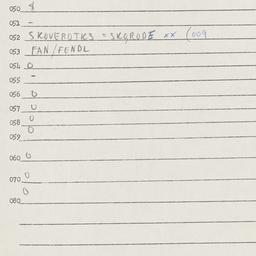 050 8
051 -
052 SKOVEROTKS = SKGRODE xx (009
053 FAN/FENDL
054 0
055 -
056 0
057 0
058 0
059 0
060 0
070 0
0
080